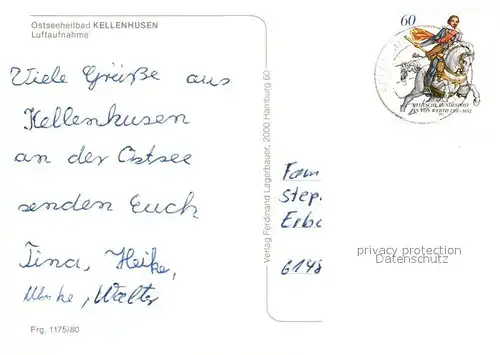 Ostseeheilbad KELLENHUSEN
Luftaufnahme
Viele Grüße aus
Kellenhusen
an der Ostsee
senden Euch
Tina, Heike,
Walter
Frg. 1175/80
Verlag Ferdinand Lagerbauer, 2000 Hamburg 60
60
DEUTSCHE BUNDESPOST
JAN VON WERTH 1591-1652
Fam
Step
Erb
6148
privacy protection
Datenschutz